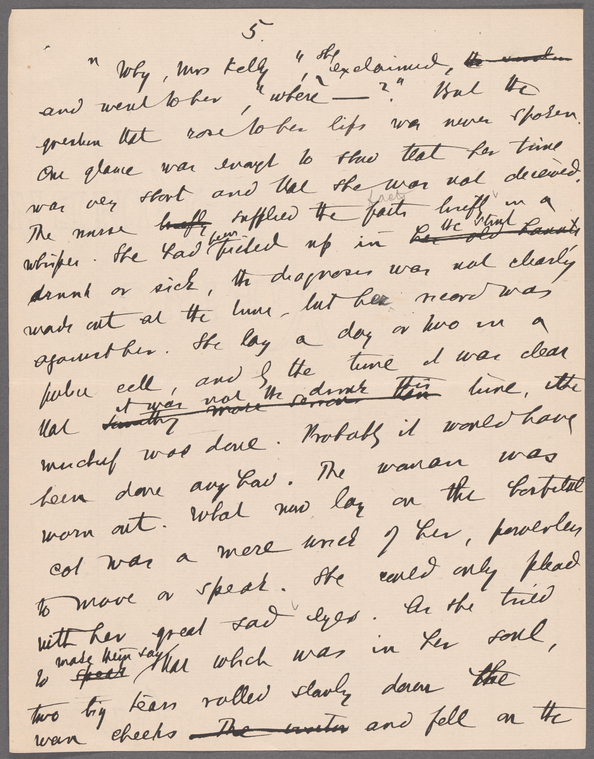 5.
" Why, Mrs Kelly ", she exclaimed, the
and went to her, "where — ?" But the
question that rose to her lips was never spoken.
One glance was enough to show that her time
was very short and that she was not deceived.
facts
The nurse briefly supplied the facts briefly in a
whisper. She had been picked up in her old haunts the street
drunk or sick, the diagnosis was not clearly
made out at the time, but her record was
against her. She lay a day or two in a
police cell, and by the time it was clear
that it was not the drink this time, the
mischief was done. Probably it would have
been done anyhow. The woman was
worn out. What now lay on the hospital
cot was a mere wreck of her, powerless
to move or speak. She could only plead
with her great sad eyes. As she tried
to speak make them say that which was in her soul,
two big tears rolled slowly down the
wan cheeks The visitor and fell on the